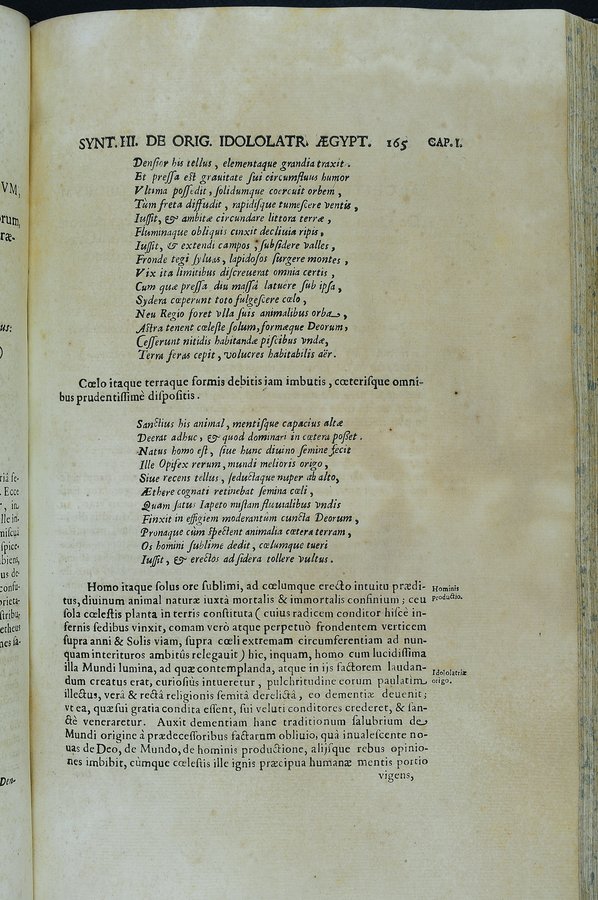 SYNT. III. DE ORIG. IDOLOLATR. ÆGYPT. 165 CAP. I.
Densior his tellus, elementaque grandia traxit.
Et pressa est grauitate sui circumfluus humor
Vltima possedit, solidumque coercuit orbem,
Tùm freta diffudit, rapidisque tumescere ventis,
Iussit, & ambitæ circundare littora terræ,
Fluminaque obliquis cinxit decliuia ripis,
Iussit, & extendi campos, subsidere valles,
Fronde tegi syluas, lapidosos surgere montes,
Vix ita limitibus discreuerat omnia certis,
Cum quæ pressa diu massâ latuere sub ipsa,
Sydera cœperunt toto fulgescere cœlo,
Neu Regio foret vlla suis animalibus orba,
Astra tenent cœleste solum, formæque Deorum,
Cesserunt nitidis habitandæ piscibus vndæ,
Terra feras cepit, volucres habitabilis aër.
Cœlo itaque terraque formis debitis iam imbutis, cœterisque omni-
bus prudentissimè dispositis.
Sanctius his animal, mentisque capacius altæ
Deerat adhuc, & quod dominari in cœtera posset.
Natus homo est, siue hunc diuino semine fecit
Ille Opifex rerum, mundi melioris origo,
Siue recens tellus, seductaque nuper ab alto,
Æthere cognati retinebat semina cœli,
Quam satus Iapeto mistam fluuialibus vndis
Finxit in effigiem moderantum cuncta Deorum,
Pronaque cùm spectent animalia cœtera terram,
Os homini sublime dedit, cœlumque tueri
Iussit, & erectos ad sidera tollere vultus.
Homo itaque solus ore sublimi, ad cœlumque erecto intuitu prædi-
tus, diuinum animal naturæ iuxtà mortalis & immortalis confinium; ceu
sola cœlestis planta in terris constituta (cuius radicem conditor hisce in-
fernis sedibus vinxit, comam verò atque perpetuò frondentem verticem
supra anni & Solis viam, supra cœli extremam circumferentiam ad nun-
quam interituros ambitus relegauit) hic, inquam, homo cum lucidissima
illa Mundi lumina, ad quæ contemplanda, atque in ijs factorem laudan-
dum creatus erat, curiosiùs intueretur, pulchritudine eorum paulatim
illectus, verâ & rectâ religionis semitâ derelictâ, eo dementiæ deuenit;
vt ea, quæ sui gratia condita essent, sui veluti conditores crederet, & san-
ctè veneraretur. Auxit dementiam hanc traditionum salubrium de
Mundi origine à prædecessoribus factarum obliuio, quâ inualescente no-
uas de Deo, de Mundo, de hominis productione, alijsque rebus opinio-
nes imbibit, cùmque cœlestis ille ignis præcipua humanæ mentis portio
vigens,
Hominis
Productio.
Idololatriæ
origo.
VM,
orum,
us:
Ecce
Den-